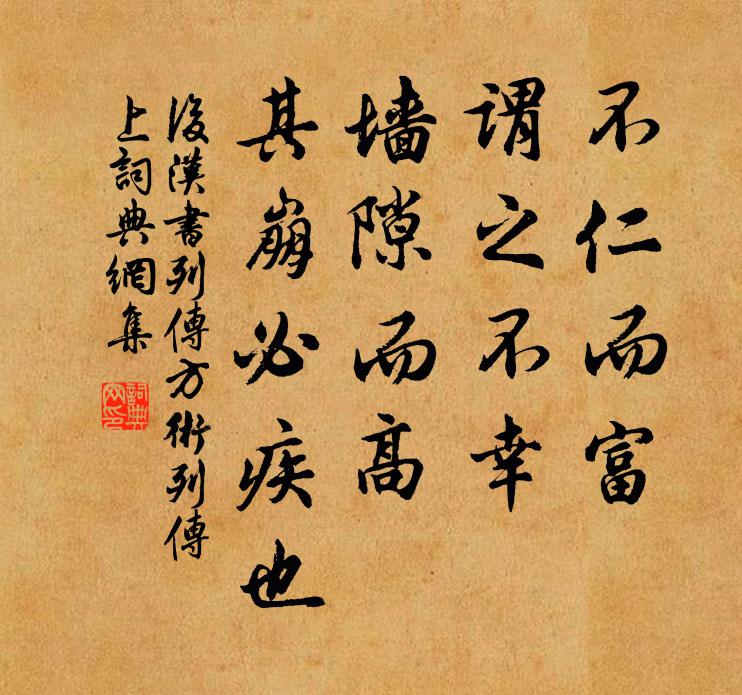 不仁而富
謂之不幸
墙隙而高
其崩必疾也
後漢書列傳方術列傳
上詞典網集
詞典
网印